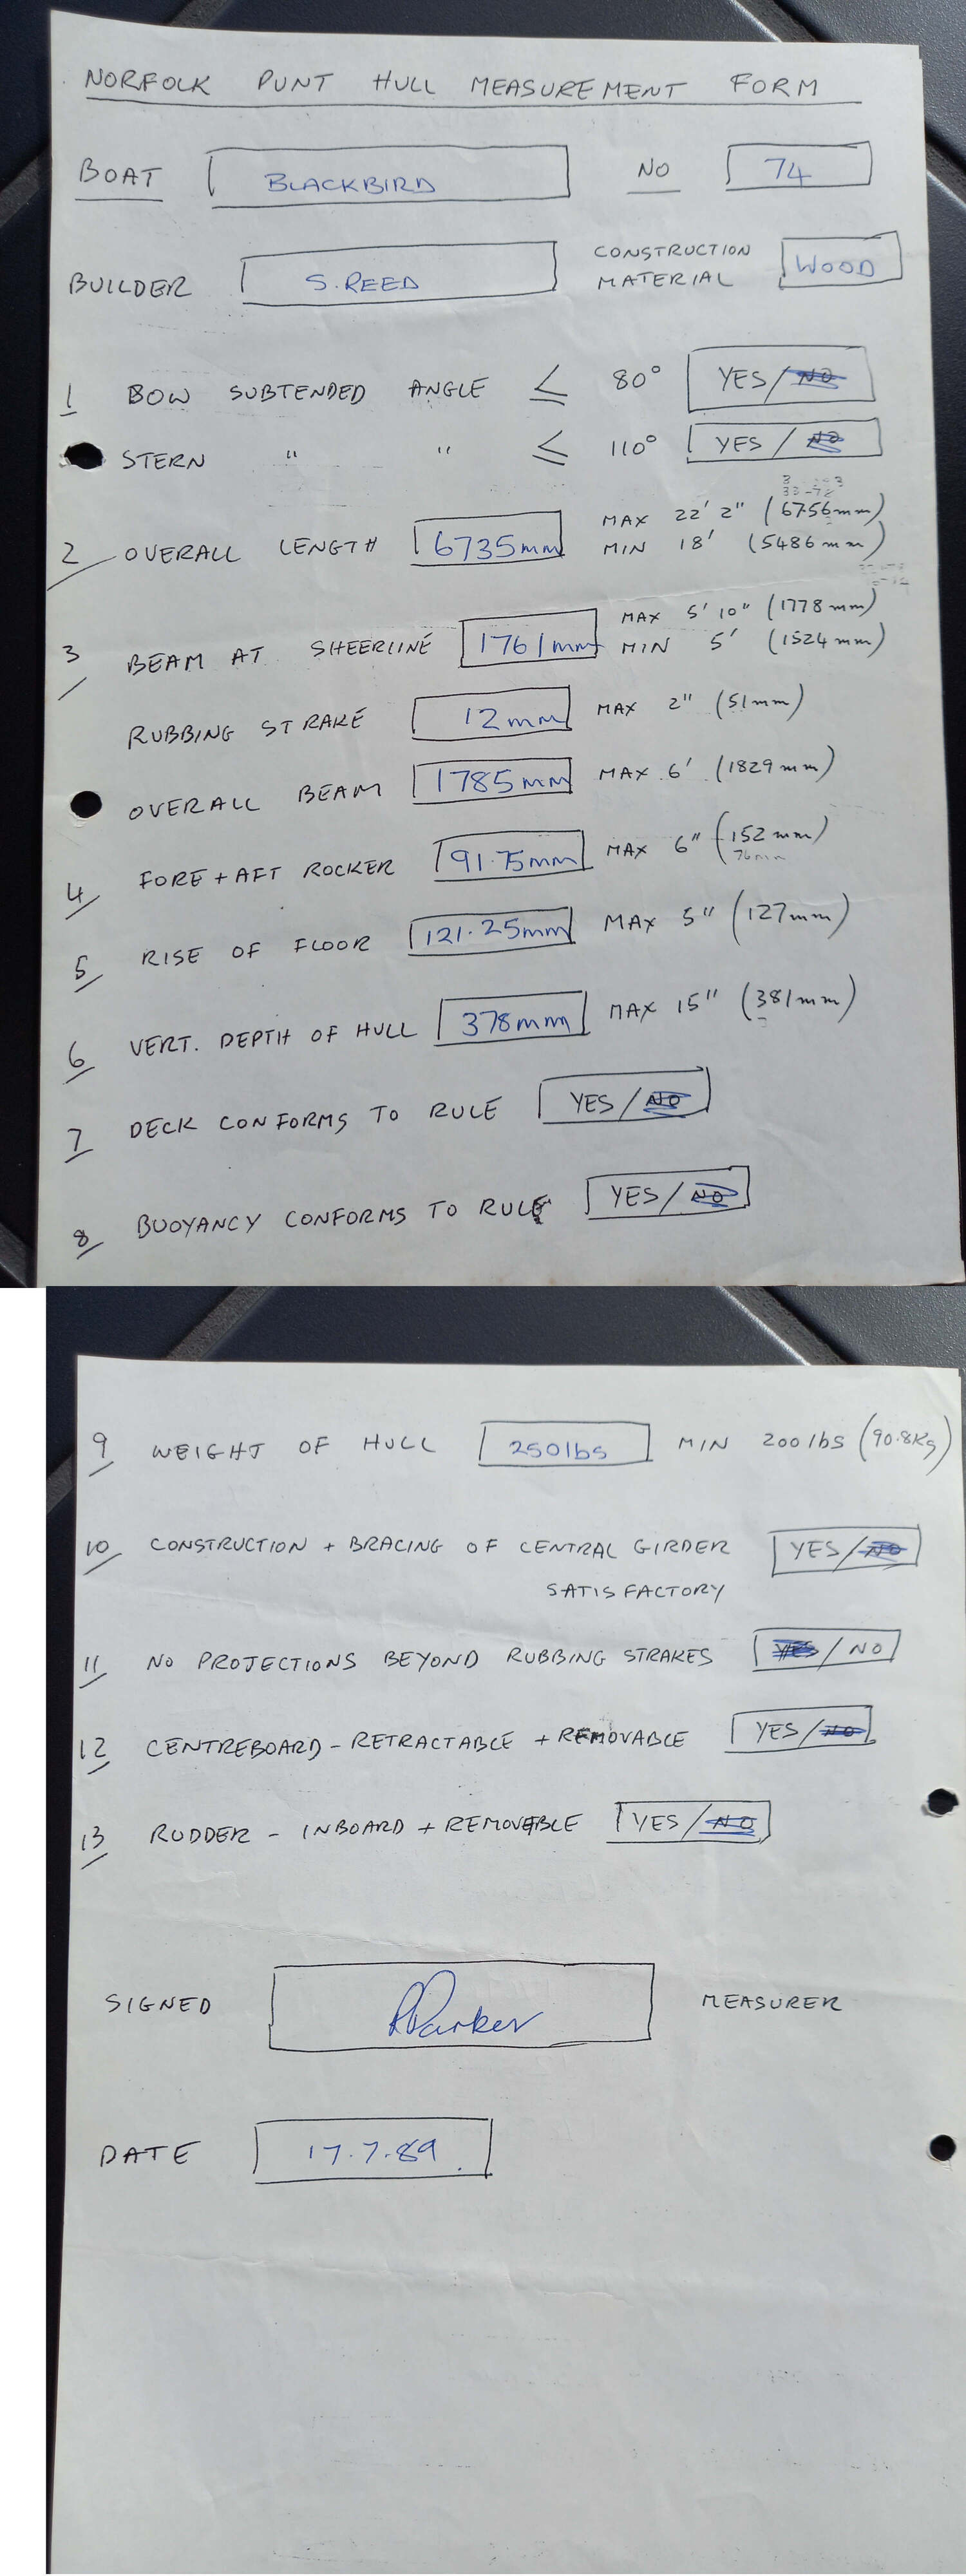 NORFOLK PUNT HULL MEASUREMENT FORM
BOAT BLACKBIRD NO 74
BUILDER S. REED CONSTRUCTION MATERIAL WOOD
1 BOW SUBTENDED ANGLE ≤ 80° YES/NO
STERN " " ≤ 110° YES/NO
2 OVERALL LENGTH 6735mm MAX 22' 2" (6756mm)
MIN 18' (5486mm)
3 BEAM AT SHEERLINE 1761mm MAX 5' 10" (1778mm)
MIN 5' (1524mm)
RUBBING STRAKE 12mm MAX 2" (51mm)
OVERALL BEAM 1785mm MAX 6' (1829mm)
4 FORE + AFT ROCKER 91.75mm MAX 6" (152mm)
76mm
5 RISE OF FLOOR 121.25mm MAX 5" (127mm)
6 VERT. DEPTH OF HULL 378mm MAX 15" (381mm)
7 DECK CONFORMS TO RULE YES/NO
8 BUOYANCY CONFORMS TO RULE YES/NO
9 WEIGHT OF HULL 250lbs MIN 200lbs (90.8Kg)
10 CONSTRUCTION + BRACING OF CENTRAL GIRDER YES/NO
SATISFACTORY
11 NO PROJECTIONS BEYOND RUBBING STRAKES YES/NO
12 CENTREBOARD - RETRACTABLE + REMOVABLE YES/NO
13 RUDDER - INBOARD + REMOVABLE YES/NO
SIGNED Parker MEASURER
DATE 17.7.89.